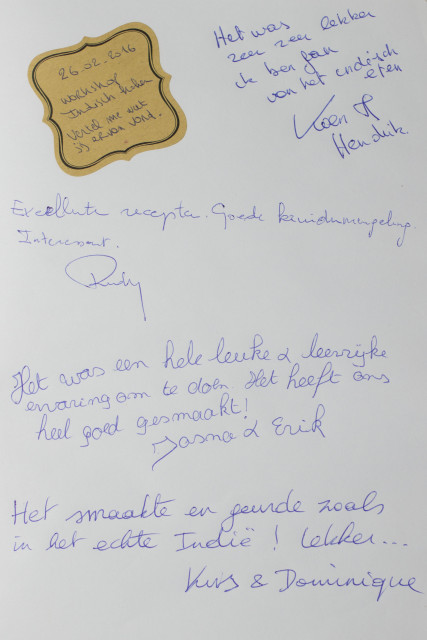 26.02.2016
workshop
Indisch koken
Vertel me wat
jij ervan vond.
Het was
zeer zeer lekker
ik ben fan
van het indisch
eten
Koen
Hendrik
Excellente recepten. Goede kruidenmengeling.
Interessant.
Rudy
Het was een hele leuke & leerrijke
ervaring om te doen. Het heeft ons
heel goed gesmaakt!
Jasna & Erik
Het smaakte en geurde zoals
in het echte Indië! Lekker...
Kris & Dominique